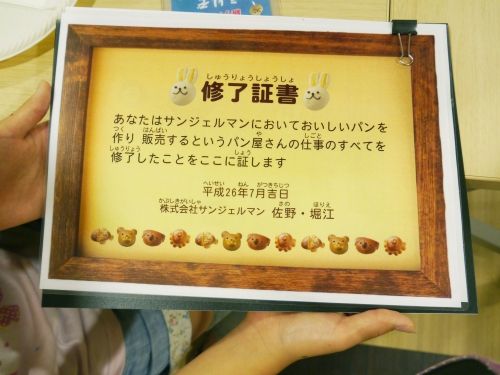 しゅうりょうしょうしょ
修了証書
あなたはサンジェルマンにおいておいしいパンを
つく はんばい や しごと
作り 販売するというパン屋さんの仕事のすべてを
しゅうりょう しょう
修了したことをここに証します
へいせい ねん がつきちじつ
平成26年7月吉日
かぶしきがいしゃ さの ほりえ
株式会社サンジェルマン 佐野・堀江